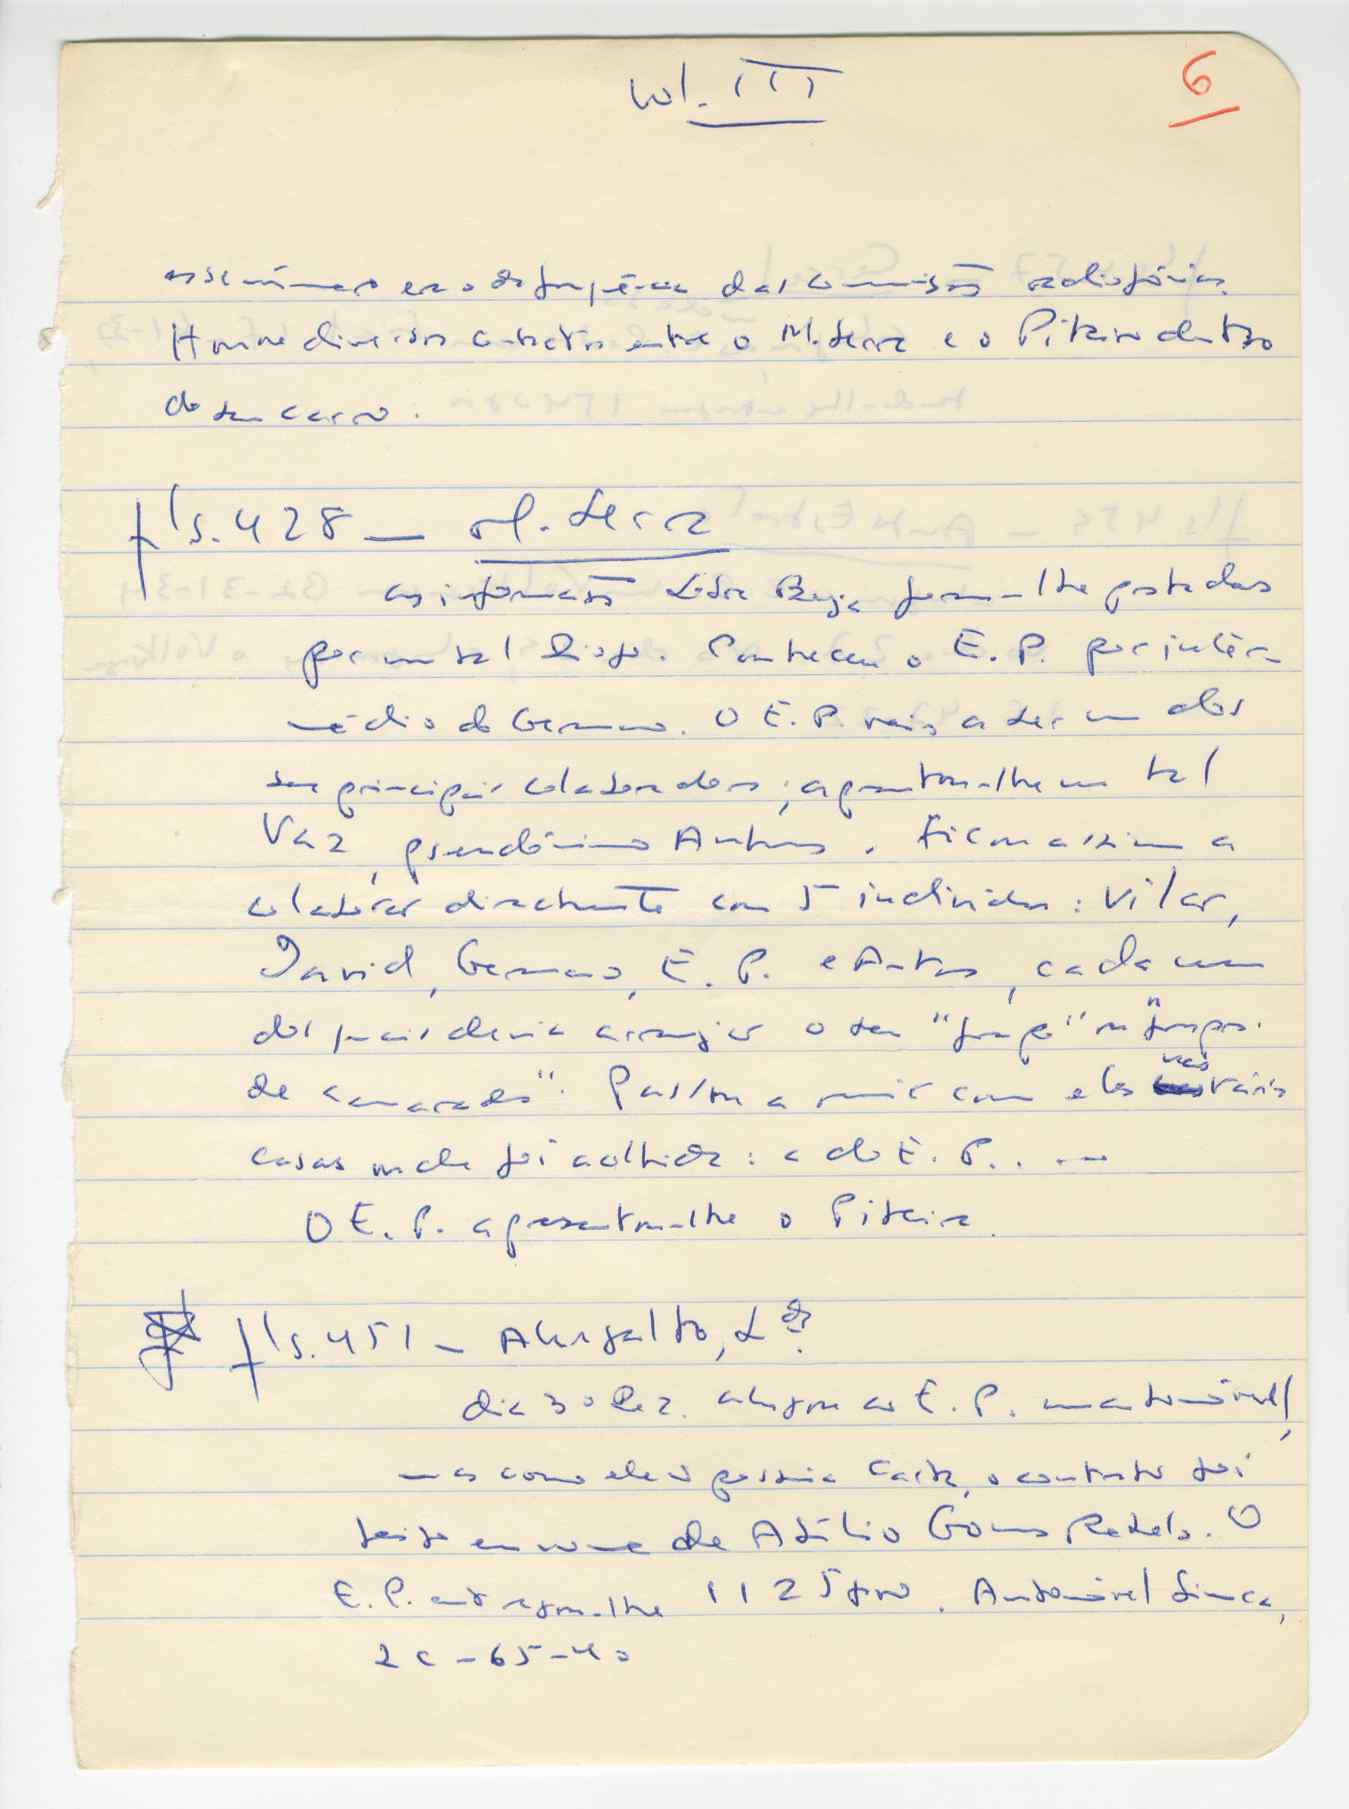 Vol. III
6
esse número era o da frequência das comissões radiofónicas.
Houve diversos contactos entre o M. Serra e o Piteira dentro
do seu carro.
fls. 428 — M. Serra
as informações sobre Beja foram-lhe prestadas
por um tal Diogo. Conheceu o E. P. por inter-
médio do Germano. O E. P. veio a ser um dos
seus principais colaboradores; apresentou-lhe um tal
Vaz, pseudónimo Antunes. Ficou assim a
colaborar directamente com 5 indivíduos: Vilar,
David, Germano, E. P. e Antunes, cada um
dos quais devia arranjar o seu "grupo" ou "grupo
de camaradas". Passou a reunir com eles nas várias
casas onde foi acolhido: a do E. P. . ...
O E. P. apresentou-lhe o Piteira.
fls. 451 — Alugalto, Ldª.
dia 30 Dez. alugou ao E. P. um automóvel,
mas como ele ñ possuia carta, o contrato foi
feito em nome de Atílio Gomes Rebelo. O
E. P. entregou-lhe 1125$00. Automóvel Simca,
-65-40